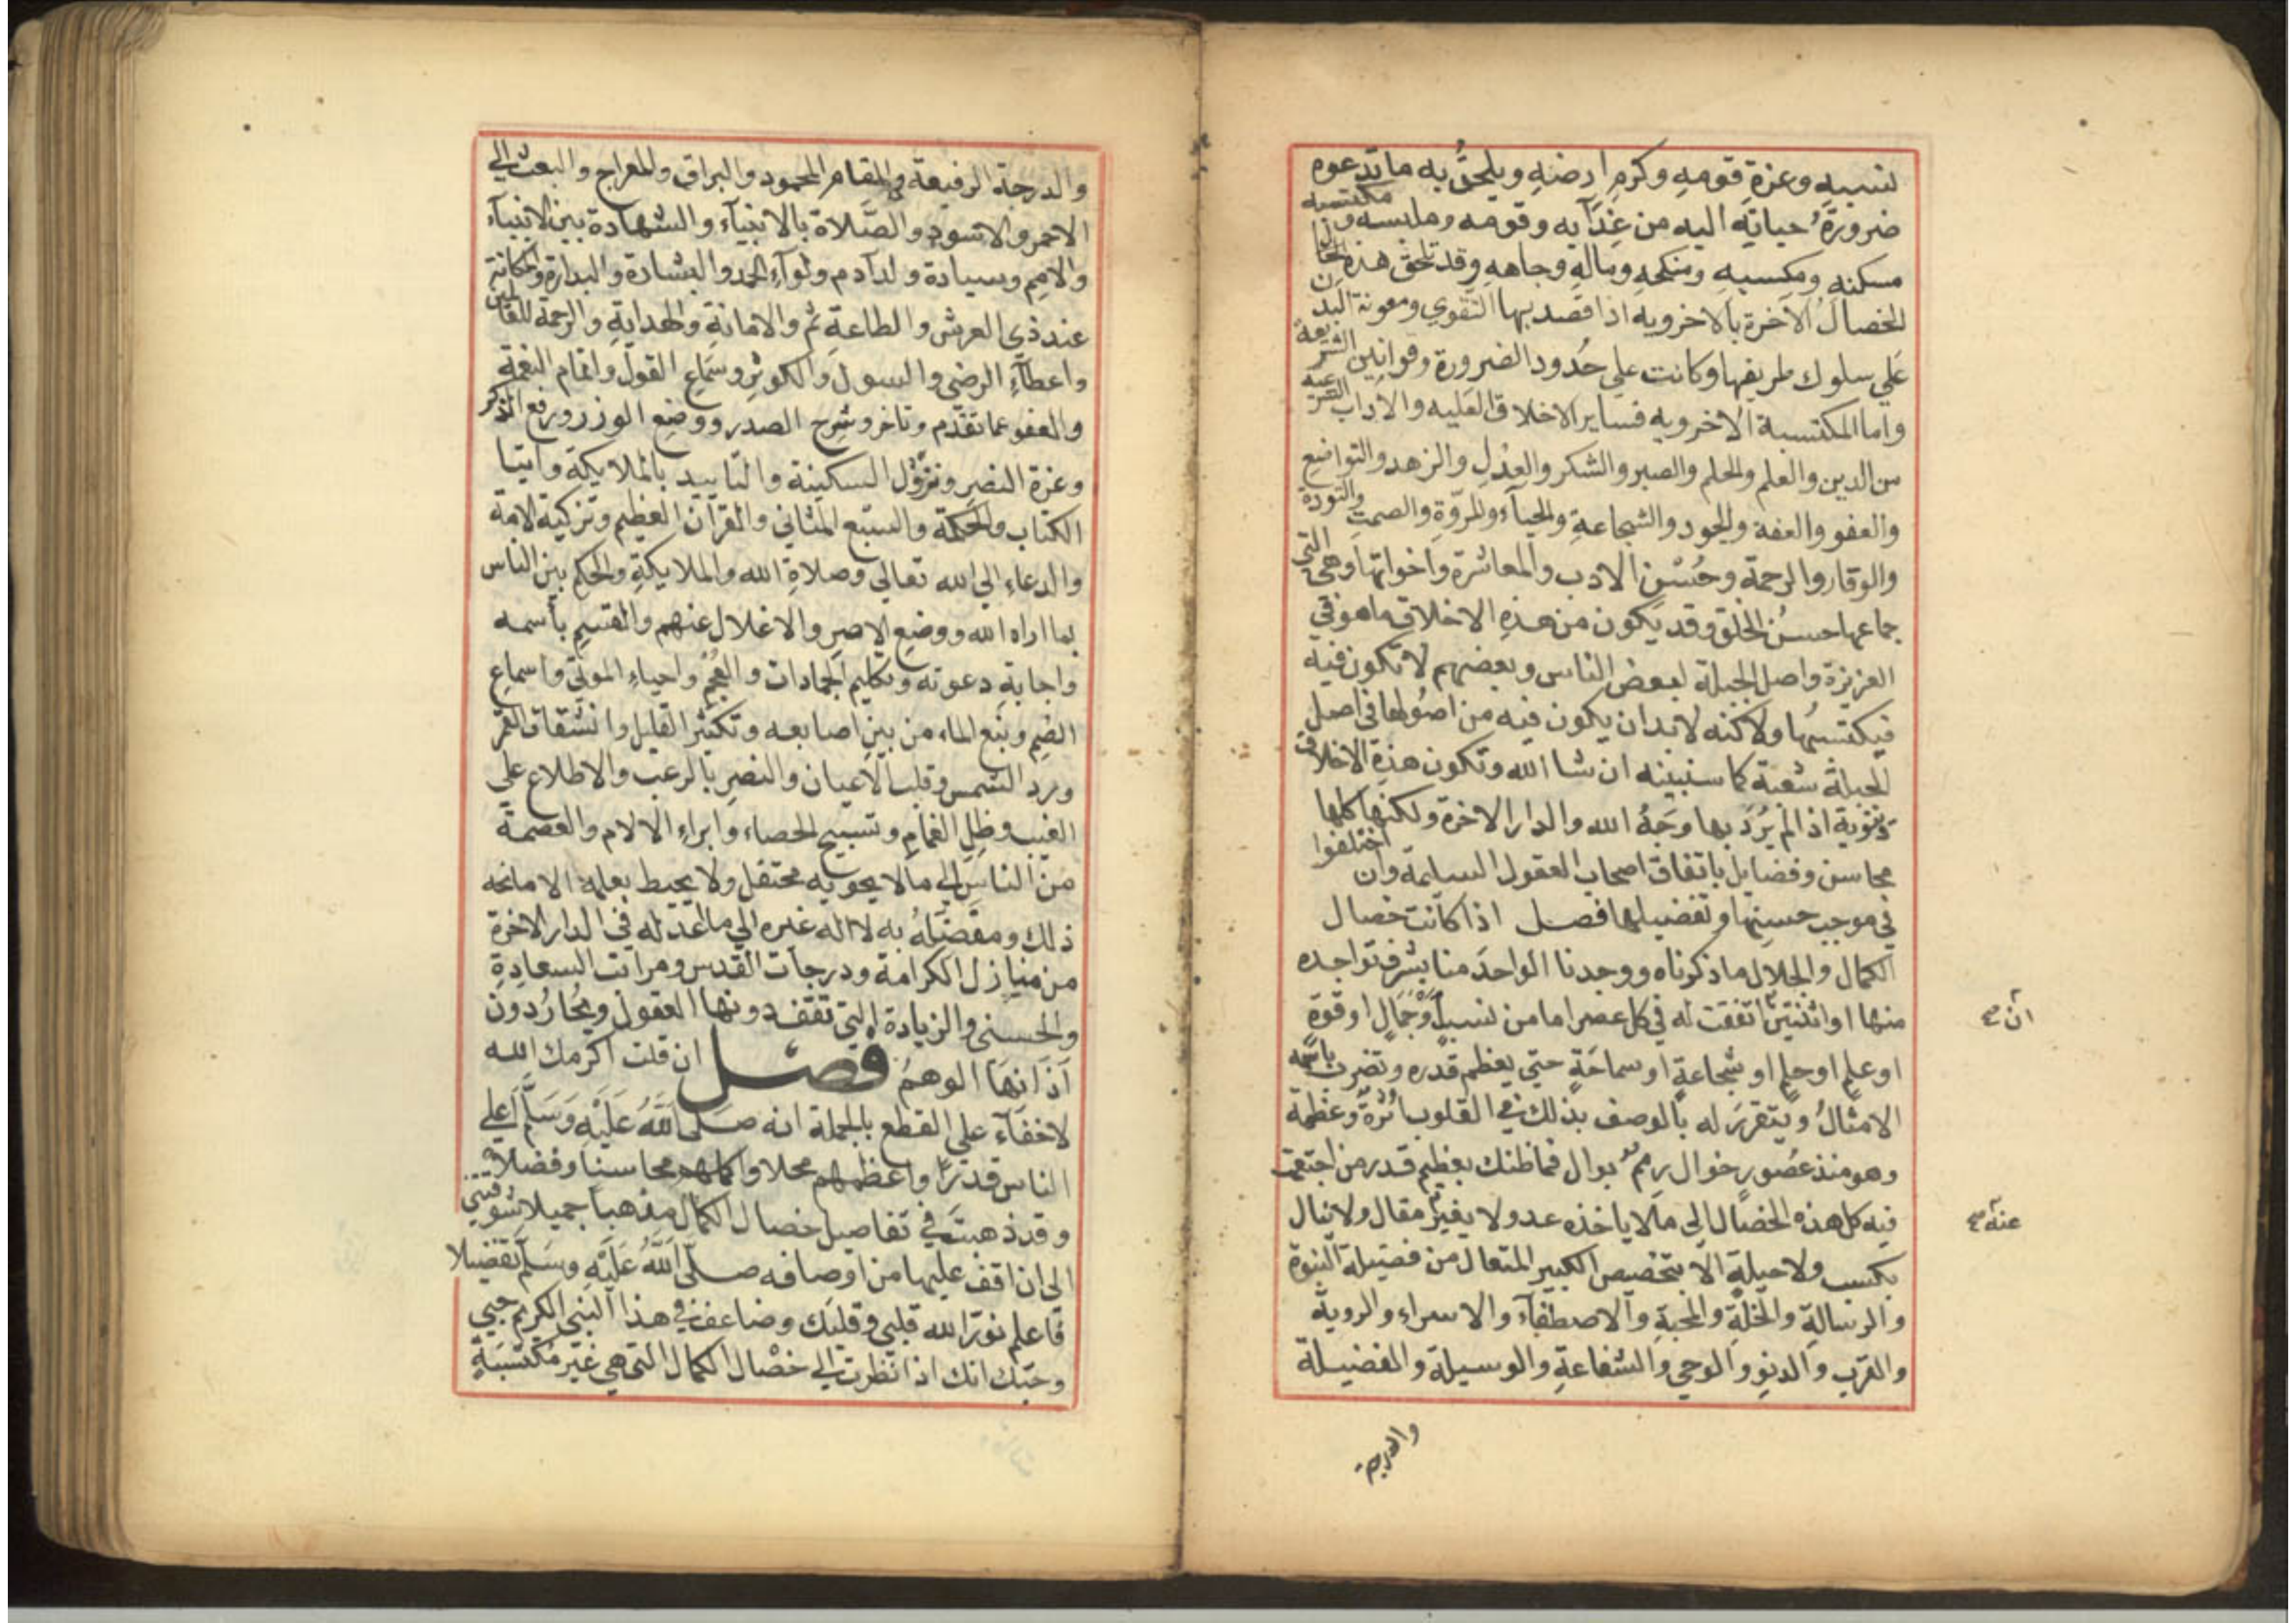 نسبه وعزة قومه وكرم ارضه ويلحق به ما تدعوه
ضرورة حياته اليه من غذايه وقومه وملبسه و
مسكنه ومكسبه ومنكحه وماله وجاهه وقد تلحق هذه
الخصال الآخرة بالاخرويه اذا قصد بها التقوي ومعونة البدن
علي سلوك طريقها وكانت علي حدود الضرورة وقوانين الشريعة
واما المكتسبة الاخرويه فساير الاخلاق العليه والاداب الشرعيه
من الدين والعلم والحلم والصبر والشكر والعدل والزهد والتواضع
والعفو والعفه والجود والشجاعة والحيآء والمروة والصمت والتودة
والوقار والرحمة وحسن الادب والمعاشرة واخواتها وهي التي
جماعها حسن الخلق وقد يكون من هذه الاخلاق ما هو في
الغريزة واصل الجبلة لبعض الناس وبعضهم لا تكون فيه
فيكتسبها ولاكنه لا بد ان يكون فيه من اصولها في اصل
الجبلة شعبة كما سنبينه ان شا الله وتكون هذه الاخلاق
دنيوية اذا لم يرد بها وجه الله والدار الاخرة ولكنها كلها
محاسن وفضايل باتفاق اصحاب العقول السليمة وان اختلفوا
في موجب حسنها وتفضيلها فصل اذا كانت خصال
الكمال والجلال ما ذكرناه ووجدنا الواحد منا يشرف بواحده
منها او اثنتين اتفقت له في كل عصر اما من نسب او جمال او قوة
ان صح
او علم او حلم او شجاعة او سماحة حتي يعظم قدره وتضرب باسمه
الامثال ويتقرر له بالوصف بذلك في القلوب اثرة وعظمة
وهو منذ عصور خوال رمم بوال فما ظنك بعظيم قدر من اجتمعت
فيه كل هذه الخصال الي ما لا ياخذه عد ولا يعبر مقال ولا ينال
عنه صح
بكسب ولا حيلة الا بتخصيص الكبير المتعال من فضيلة النبوة
والرسالة والخلة والمحبة والاصطفآء والاسراء والروية
والقرب والدنو والوحي والشفاعة والوسيلة والفضيلة
والدرجة
والدرجة الرفيعة والمقام المحمود والبراق والمعراج والبعث الي
الاحمر والاسود والصلاة بالانبيآء والشهادة بين الانبيآء
والامم وسيادة ولد آدم ولوآء الحمد والبشارة والنذارة والمكانة
عند ذي العرش والطاعة ثم والامانة والهداية والرحمة للعالمين
واعطآء الرضي والسول والكوثر وسماع القول واتمام النعمة
والعفو عما تقدم وتاخر وشرح الصدر ووضع الوزر ورفع الذكر
وعزة النصر ونزول السكينة والتاييد بالملايكة وايتا
الكتاب والحكمة والسبع المثاني والقرآن العظيم وتزكية الامة
والدعاء الي الله تعالي وصلاة الله والملايكة والحكم بين الناس
بما اراه الله ووضع الاصر والاغلال عنهم والقسم باسمه
واجابة دعوته وتكليم الجمادات والعجم واحياء الموتي واسماع
الصم ونبع الماء من بين اصابعه وتكثير القليل وانشقاق القمر
ورد الشمس وقلب الاعيان والنصر بالرعب والاطلاع علي
الغيب وظل الغمام وتسبيح الحصاء وابراء الالام والعصمة
من الناس الي ما لا يحويه محتفل ولا يحيط بعلمه الا مانحه
ذلك ومفضله به لا اله غيره الي ما اعد له في الدار الاخرة
من منازل الكرامة ودرجات القدس ومراتب السعادة
والحسني والزيادة التي تقف دونها العقول ويحار دون
اذانها الوهم فصل ان قلت اكرمك الله
لا خفآء علي القطع بالجملة انه صلي الله عليه وسلم اعلي
الناس قدرا واعظمهم محلا واكملهم محاسنا وفضلا
وقد ذهبت في تفاصيل خصال الكمال مذهبا جميلا شوقني
الي ان اقف عليها من اوصافه صلي الله عليه وسلم تفضيلا
فاعلم نور الله قلبي وقلبك وضاعف في هذا النبي الكريم حبي
وحبك انك اذا نظرت الي خصال الكمال التي هي غير مكتسبة